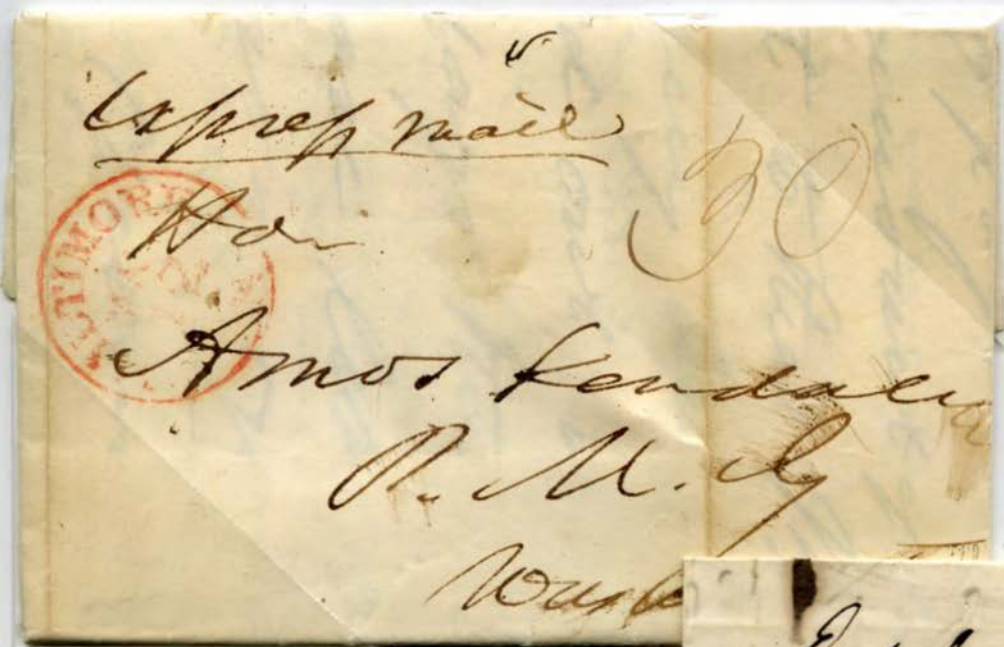 Express mail
30
BALTIMORE
Hon
Amos Kendall
P. M. Gl